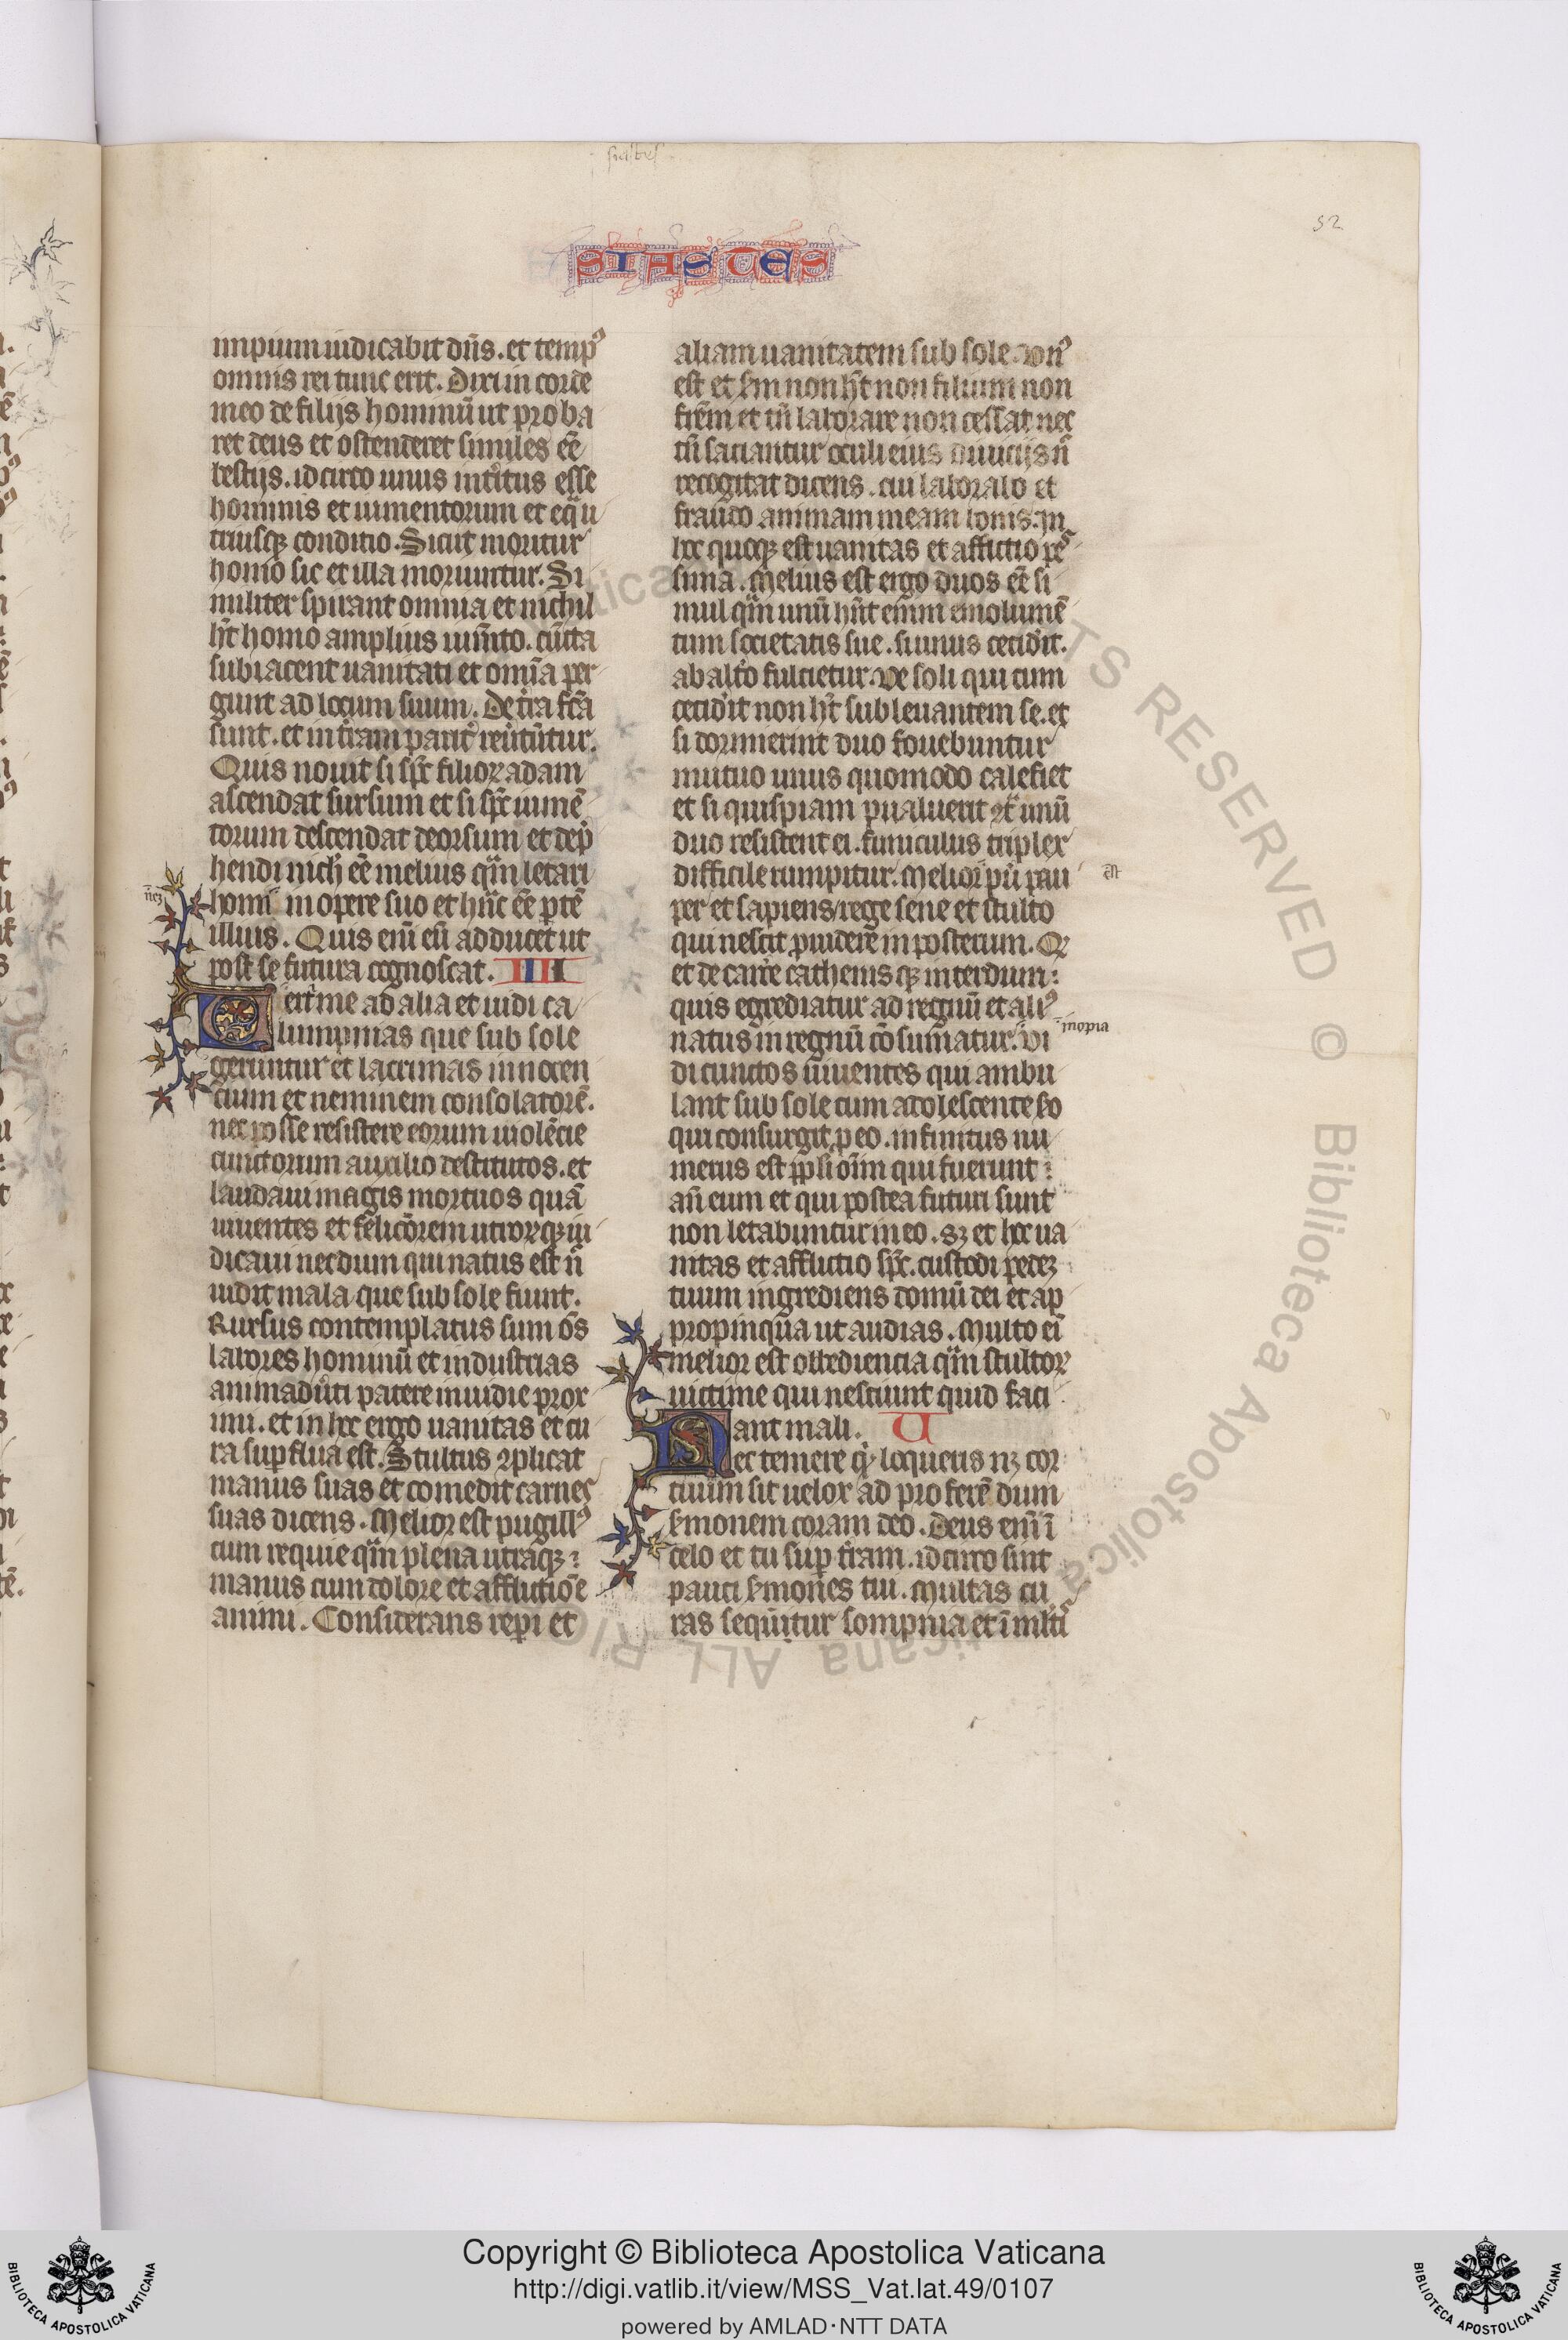 siastes
52
SIASTES
impium iudicabit dñs. et tempꝰ
omnis rei tunc erit. Dixi in corde
meo de filijs hominū ut proba
ret deus et ostenderet similes eē
bestijs. idcirco unus intitus esse
hominis et iumentorum et equa
triusqꝫ conditio. Sicut moritur
homo sic et illa moriuntur. Si
militer spirant omnia et nichil
h̄t homo amplius iumto. cūcta
subiacent uanitati et omīa per
gunt ad locum suum. De tra fc̄a
sunt. et in tram parit reūtūtur.
Quis nouit si spc filioꝝ adam
ascendat sursum et si spc iumē
torum descendat deorsum et dep̄
hendi nich eē melius qm letari
homī in opere suo et hūc eē ptē
nēꝫ
illius. Quis enī eū adducet ut
post se futura cognoscat. IIII
Uerti me ad alia et uidi ca
lumpnias que sub sole
geruntur et lacrimas innocen
cium et neminem consolatorē.
nec posse resistere eorum uiolēcie
cunctorum auxilio destitutos. et
laudaui magis mortuos quā
uiuentes et felicōrem utroqꝫ iu
dicaui necdum qui natus est n̄
uidit mala que sub sole fiunt.
Rursus contemplatus sum ōs
labores hominū et industrias
animaduti patere inuidie prox
imi. et in hoc ergo uanitas et cu
ra supflua est. Stultus 9plicat
manus suas et comedit carnes
suas dicens. Melior est pugillꝰ
cum requie qm plena utraqꝫ
manus cum dolore et afflictiōe
animi. Considerans repi et
aliam uanitatem sub sole. Unꝰ
est et scm non h̄t non filium non
frem et tn̄ laborare non cessat nec
tn̄ saciantur oculi eius diuicijs n̄
recogitat dicens. cui laboralo et
fraudo animam meam bonis. In
hoc quoqꝫ est uanitas et afflictio pes
sima. Melius est ergo duos eē si
mul qm unū hn̄t enim emolumē
tum societatis sue. si unus cecidit.
ab alto fulcietur. Ve soli qui cum
cecidit non h̄t subleuantem se. et
si dormierint duo fouebuntur
mutuo unus quomodo calefiet
et si quispiam pualuerit 9t unū
duo resistent ei. funiculus triplex
difficile rumpitur. Melior pū pau
est
per et sapiens rege sene et stulto
qui nescit prouidere in posterum. Q
et de carcere cathenisqꝫ interdum
quis egrediatur ad regnū et aliꝰ
natus in regnū cōsumatur. Vi
inopia
di cunctos uiuentes qui ambu
lant sub sole cum adolescente scdo
qui consurgit p eo. infinitus nu
merus est ppli oīm qui fuerunt
an̄ eum et qui postea futuri sunt
non letabuntur in eo. sꝫ et hoc ua
nitas et afflictio spc. custodi pedeꝫ
tuum ingrediens domū dei et ap
propinqua ut audias. Multo ei
melior est obediencia qm stultoꝝ
uictime qui nesciunt quid faci
ant mali. V
Nec temere qd loqueris nꝫ cor
tuum sit uelox ad proferē dum
smonem coram deo. Deus enī ī
celo et tu sup tram. idcirco sint
pauci smones tui. Multas cu
ras sequitur sompnia et ī mltis
Copyright © Biblioteca Apostolica Vaticana
http://digi.vatlib.it/view/MSS_Vat.lat.49/0107
powered by AMLAD·NTT DATA
BIBLIOTECA APOSTOLICA VATICANA
BIBLIOTECA APOSTOLICA VATICANA